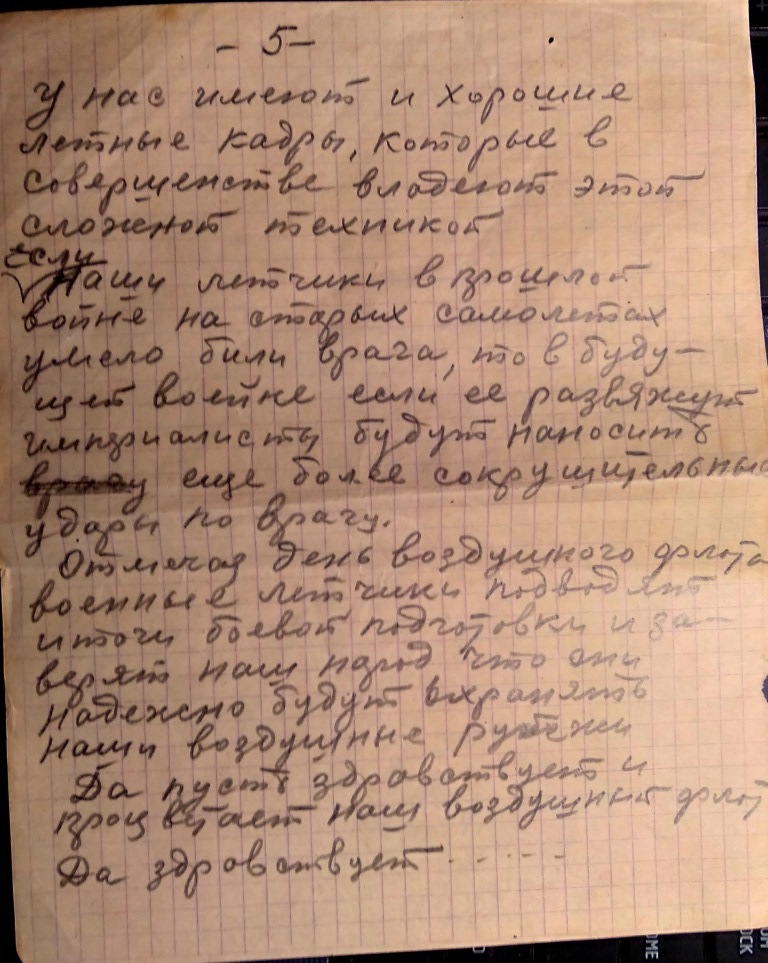 - 5 -
У нас имеют и хорошие
летные кадры, которые в
совершенстве владеют этой
сложной техникой
Если
Наши летчики в прошлой
войне на старых самолетах
умело били врага, то в буду-
щей воейне если ее развяжут
империалисты будут наносить
врагу еще более сокрущительные
удары по врагу.
Отмечая день воздушного флота
военные летчики подводят
итоги боевой подготовки и за-
верят наш народ что они
надежно будут охранять
наши воздушные рубежи
Да пусть здравствует и
процветает наш воздушный флот
Да здравствует - - - - -
OME
OCK